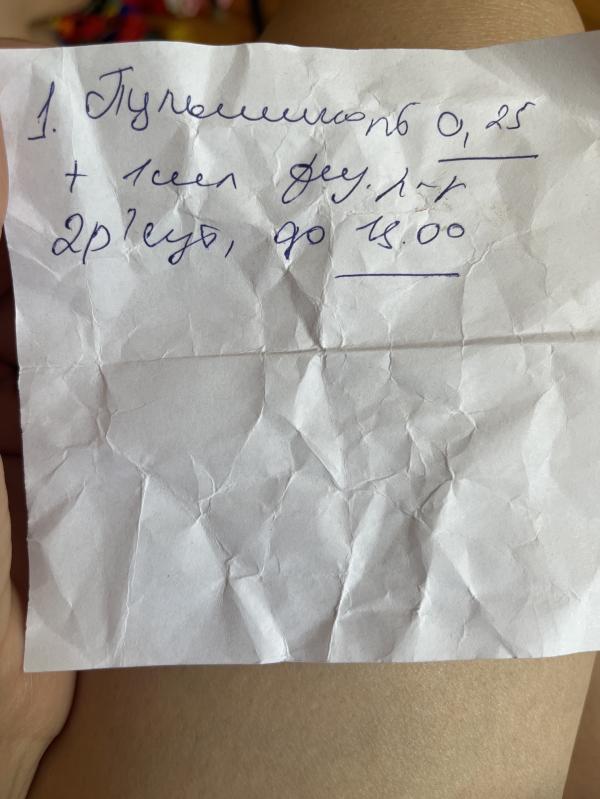 1. Пульмикорт 0,25
+ 1 мл физ. р-р
2р/сут, до 15.00